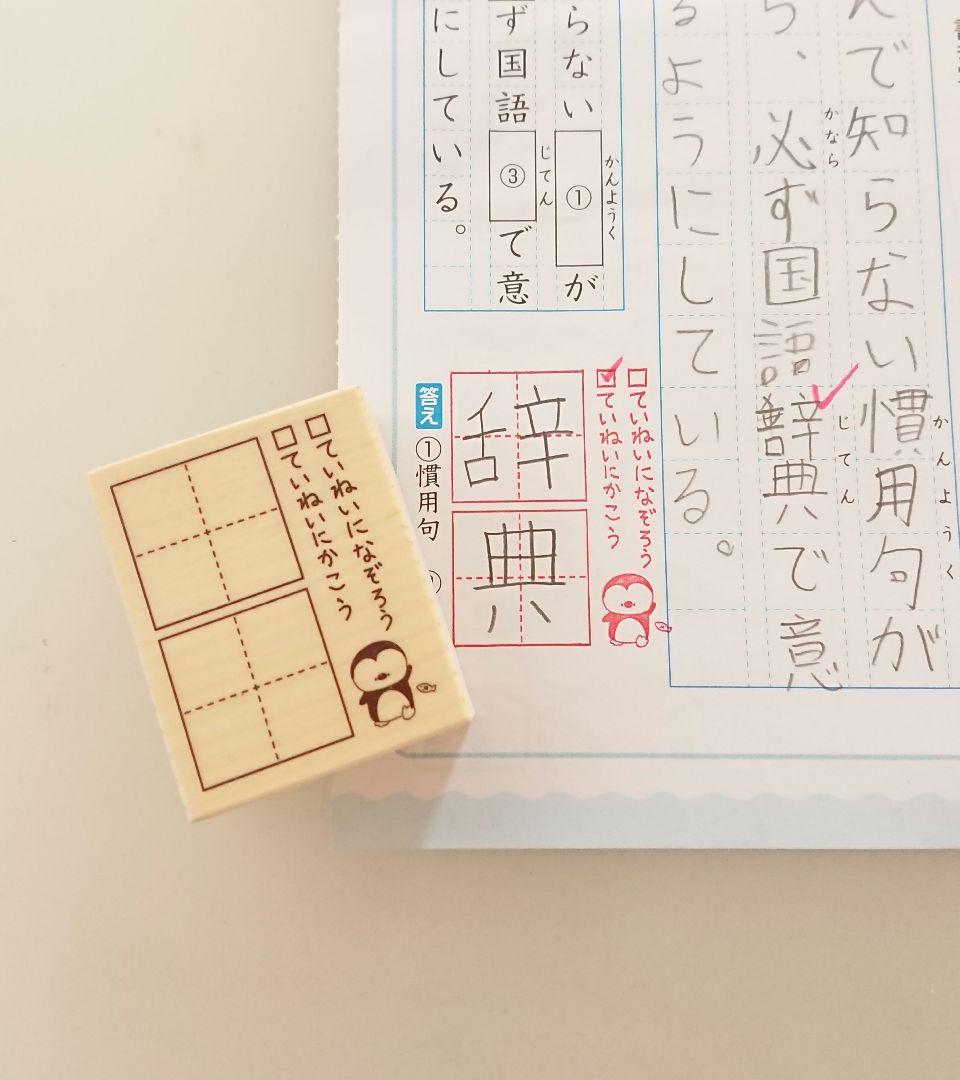 んで知らない慣用句が
かんようく
ら、必ず国語辞典で意
かなら
じてん
るようにしている。
らない①が
かんようく
ず国語③で意
じてん
にしている。
□ていねいになぞろう
☑ていねいにかこう
辞典
答え ①慣用句
□ていねいになぞろう
□ていねいにかこう